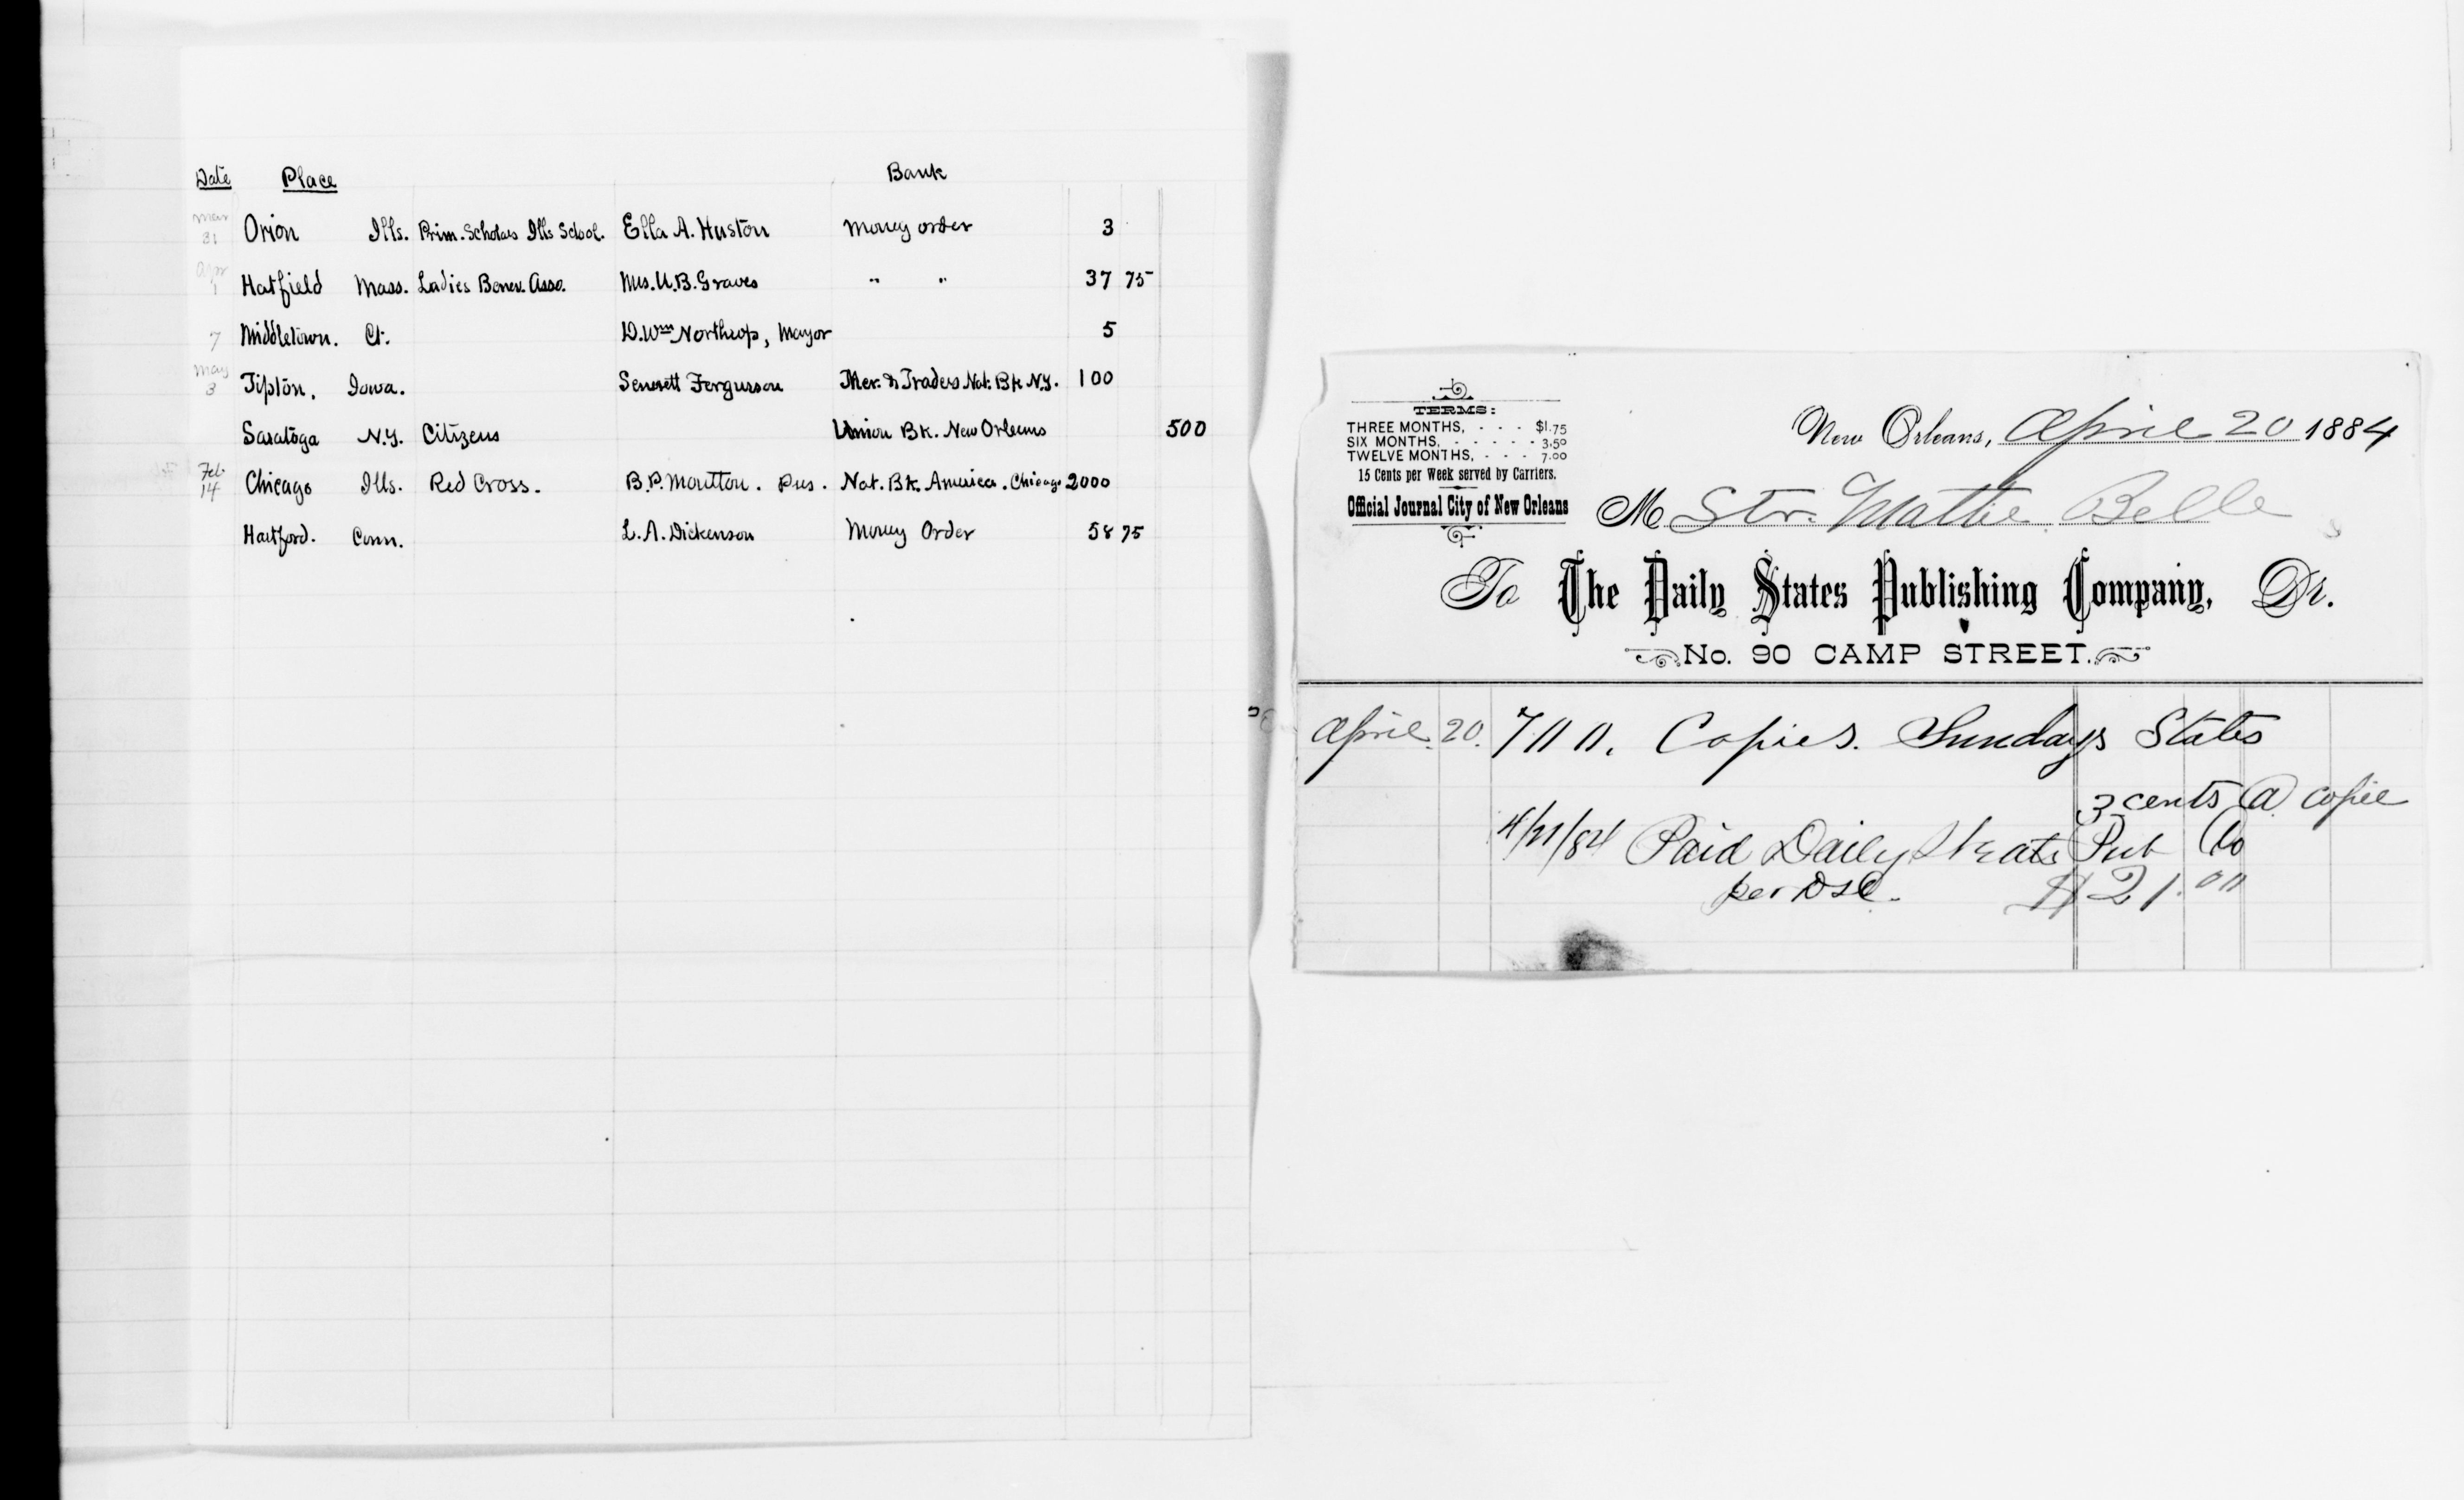 Date Place Bank
Mar 31 Orion Ills. Prim. Scholars Ills School. Ella A. Huston Money order 3
Apr 1 Hatfield Mass. Ladies Benev. Asso. Mrs. U.B. Graves " " 37 75
7 Middletown. Ct. D. Wm Northrop, Mayor 5
May 3 Tipton. Iowa. Fergusson Mer. & Traders Nat. Bk N.Y. 100
Saratoga N.Y. Citizens Union Bk. New Orleans 500
Feb 14 Chicago Ills. Red Cross. B.P. Moulton. Pres. Nat. Bk. America. Chicago 2000
Hartford. Conn. L. A. Dickenson Money Order 58 75
TERMS:
THREE MONTHS, - - - $1.75
SIX MONTHS, - - - - - 3.50
TWELVE MONTHS, - - - 7.00
15 Cents per Week served by Carriers.
Official Journal City of New Orleans
New Orleans, April 20 1884
M Str. Mattie Belle
To The Daily States Publishing Company, Dr.
No. 90 CAMP STREET.
April 20. 700. Copies. Sundays States
3 cents @ copie
4/21/84 Paid Daily States Pub Co
per $21.00